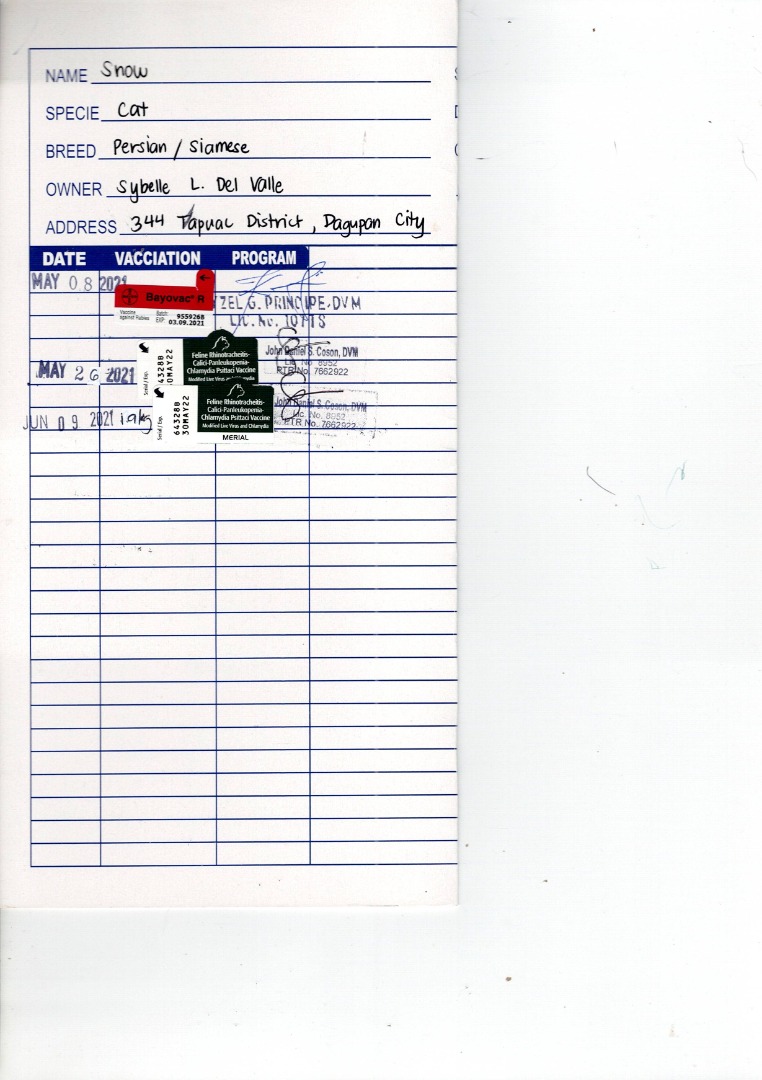 NAME Snow
SPECIE Cat
BREED Persian / Siamese
OWNER Sybelle L. Del Valle
ADDRESS 344 Tapuac District, Dagupan City
DATE VACCIATION PROGRAM
MAY 08 2021
Bayovac® R
Vaccine against Rabies
Batch: 955926B
EXP: 03.09.2021
ZEL G. PRINCIPE, DVM
LIC. No.
MAY 26 2021
Serial / Exp.
43288
30MAY22
Feline Rhinotracheitis-
Calici-Panleukopenia-
Chlamydia Psittaci Vaccine
Modified Live Virus and Chlamydia
John Daniel S. Coson, DVM
Lic. No. 8952
PTR No. 7662922
JUN 09 2021
Serial / Exp.
643288
30MAY22
Feline Rhinotracheitis-
Calici-Panleukopenia-
Chlamydia Psittaci Vaccine
Modified Live Virus and Chlamydia
MERIAL
John Daniel S. Coson, DVM
Lic. No. 8952
PTR No. 7662922